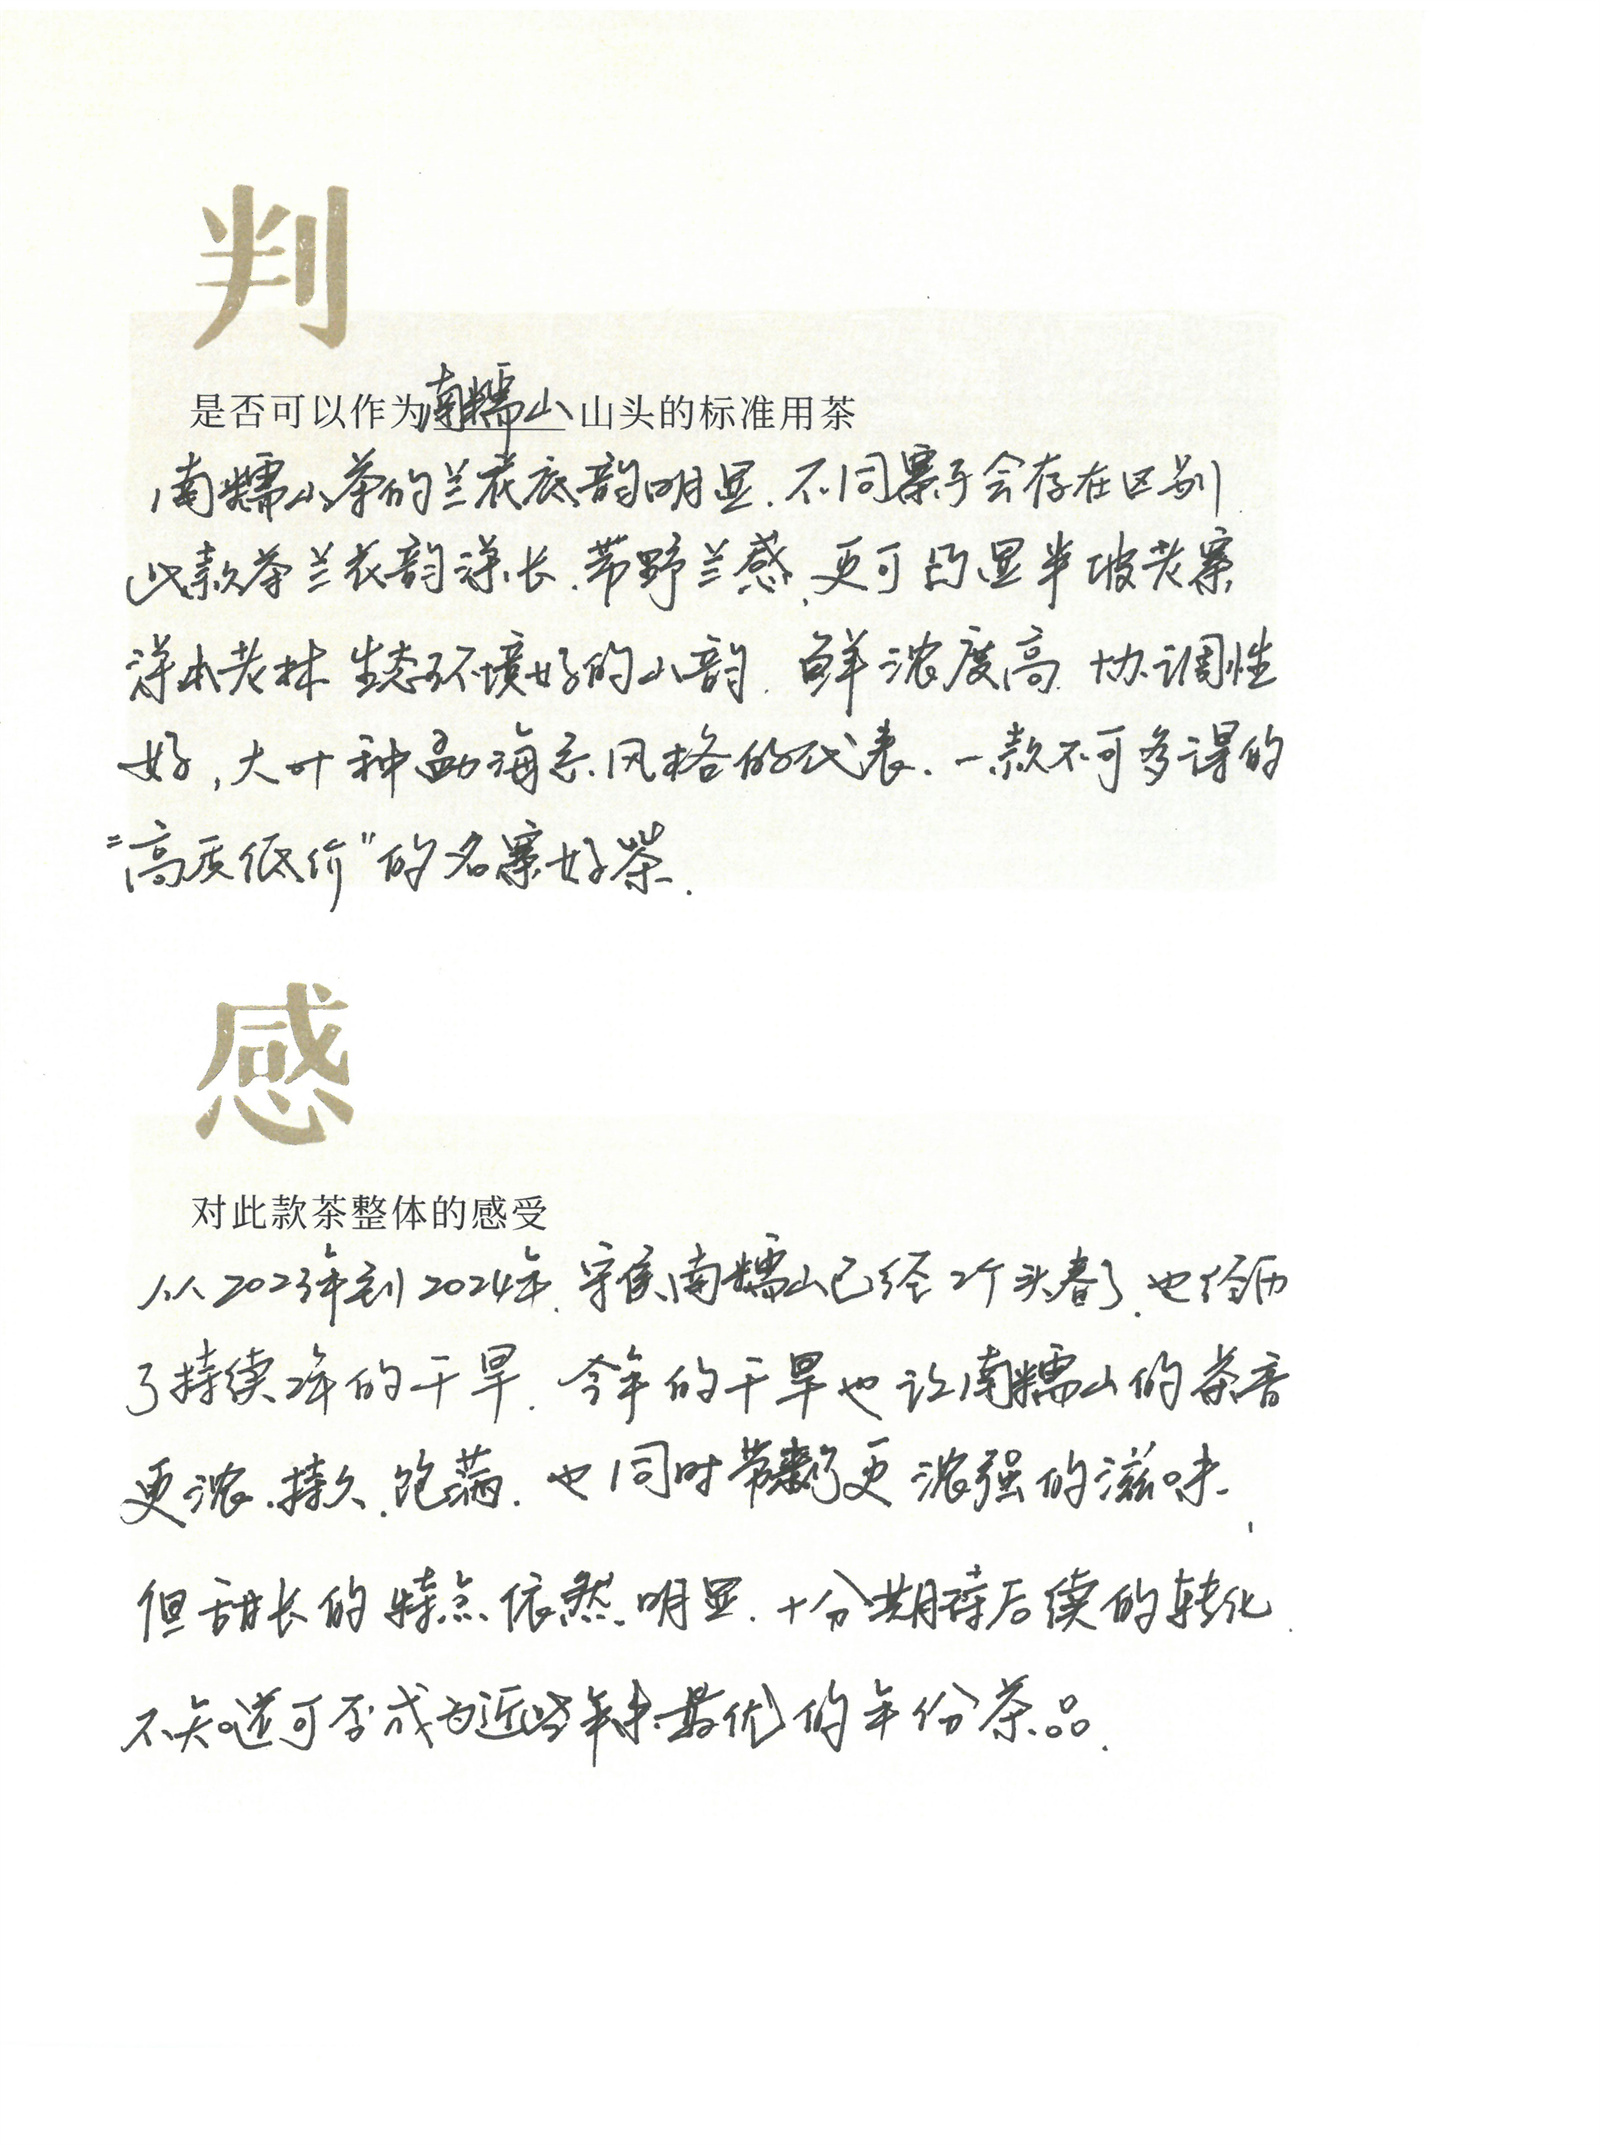 判
是否可以作为南糯山山头的标准用茶
南糯山茶的兰花底韵明显.不同寨子会存在区别.
此款茶兰花韵深长.带野兰感.更可凸显半坡老寨
深山老林生态环境好的山韵.鲜浓度高.协调性
好,大叶种勐海系风格的代表.一款不可多得的
"高质低价"的名寨好茶.
感
对此款茶整体的感受
从2023年到2024年.守候南糯山已经2个头春了.也经历
了持续2年的干旱.今年的干旱也让南糯山的茶香
更浓.持久.饱满.也同时带来了更浓强的滋味,
但甜长的特点依然明显.十分期待后续的转化.
不知道可否成为近些年来最优的年份茶品.